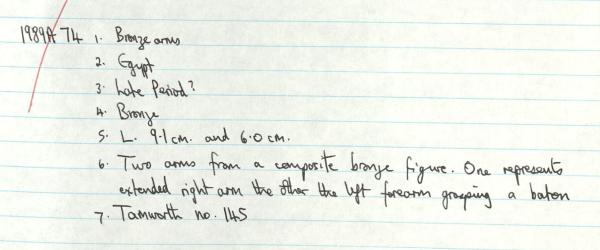 1989A74 1. Bronze arms
2. Egypt
3. Late Period?
4. Bronze
5. L. 9.1 cm. and 6.0 cm.
6. Two arms from a composite bronze figure. One represents
extended right arm the other the left forearm grasping a baton
7. Tamworth no. 145